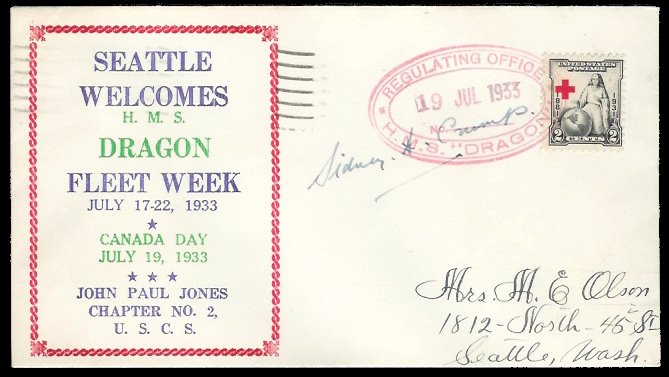 SEATTLE
WELCOMES
H. M. S.
DRAGON
FLEET WEEK
JULY 17-22, 1933
CANADA DAY
JULY 19, 1933
JOHN PAUL JONES
CHAPTER NO. 2,
U. S. C. S.
REGULATING OFFICE
19 JUL 1933
No.
H.M.S. "DRAGON"
Sidney H. Crump
UNITED STATES
POSTAGE
1881 1931
2 CENTS 2
Mrs. M. E. Olson
1812-North-45 St
Seattle, Wash.